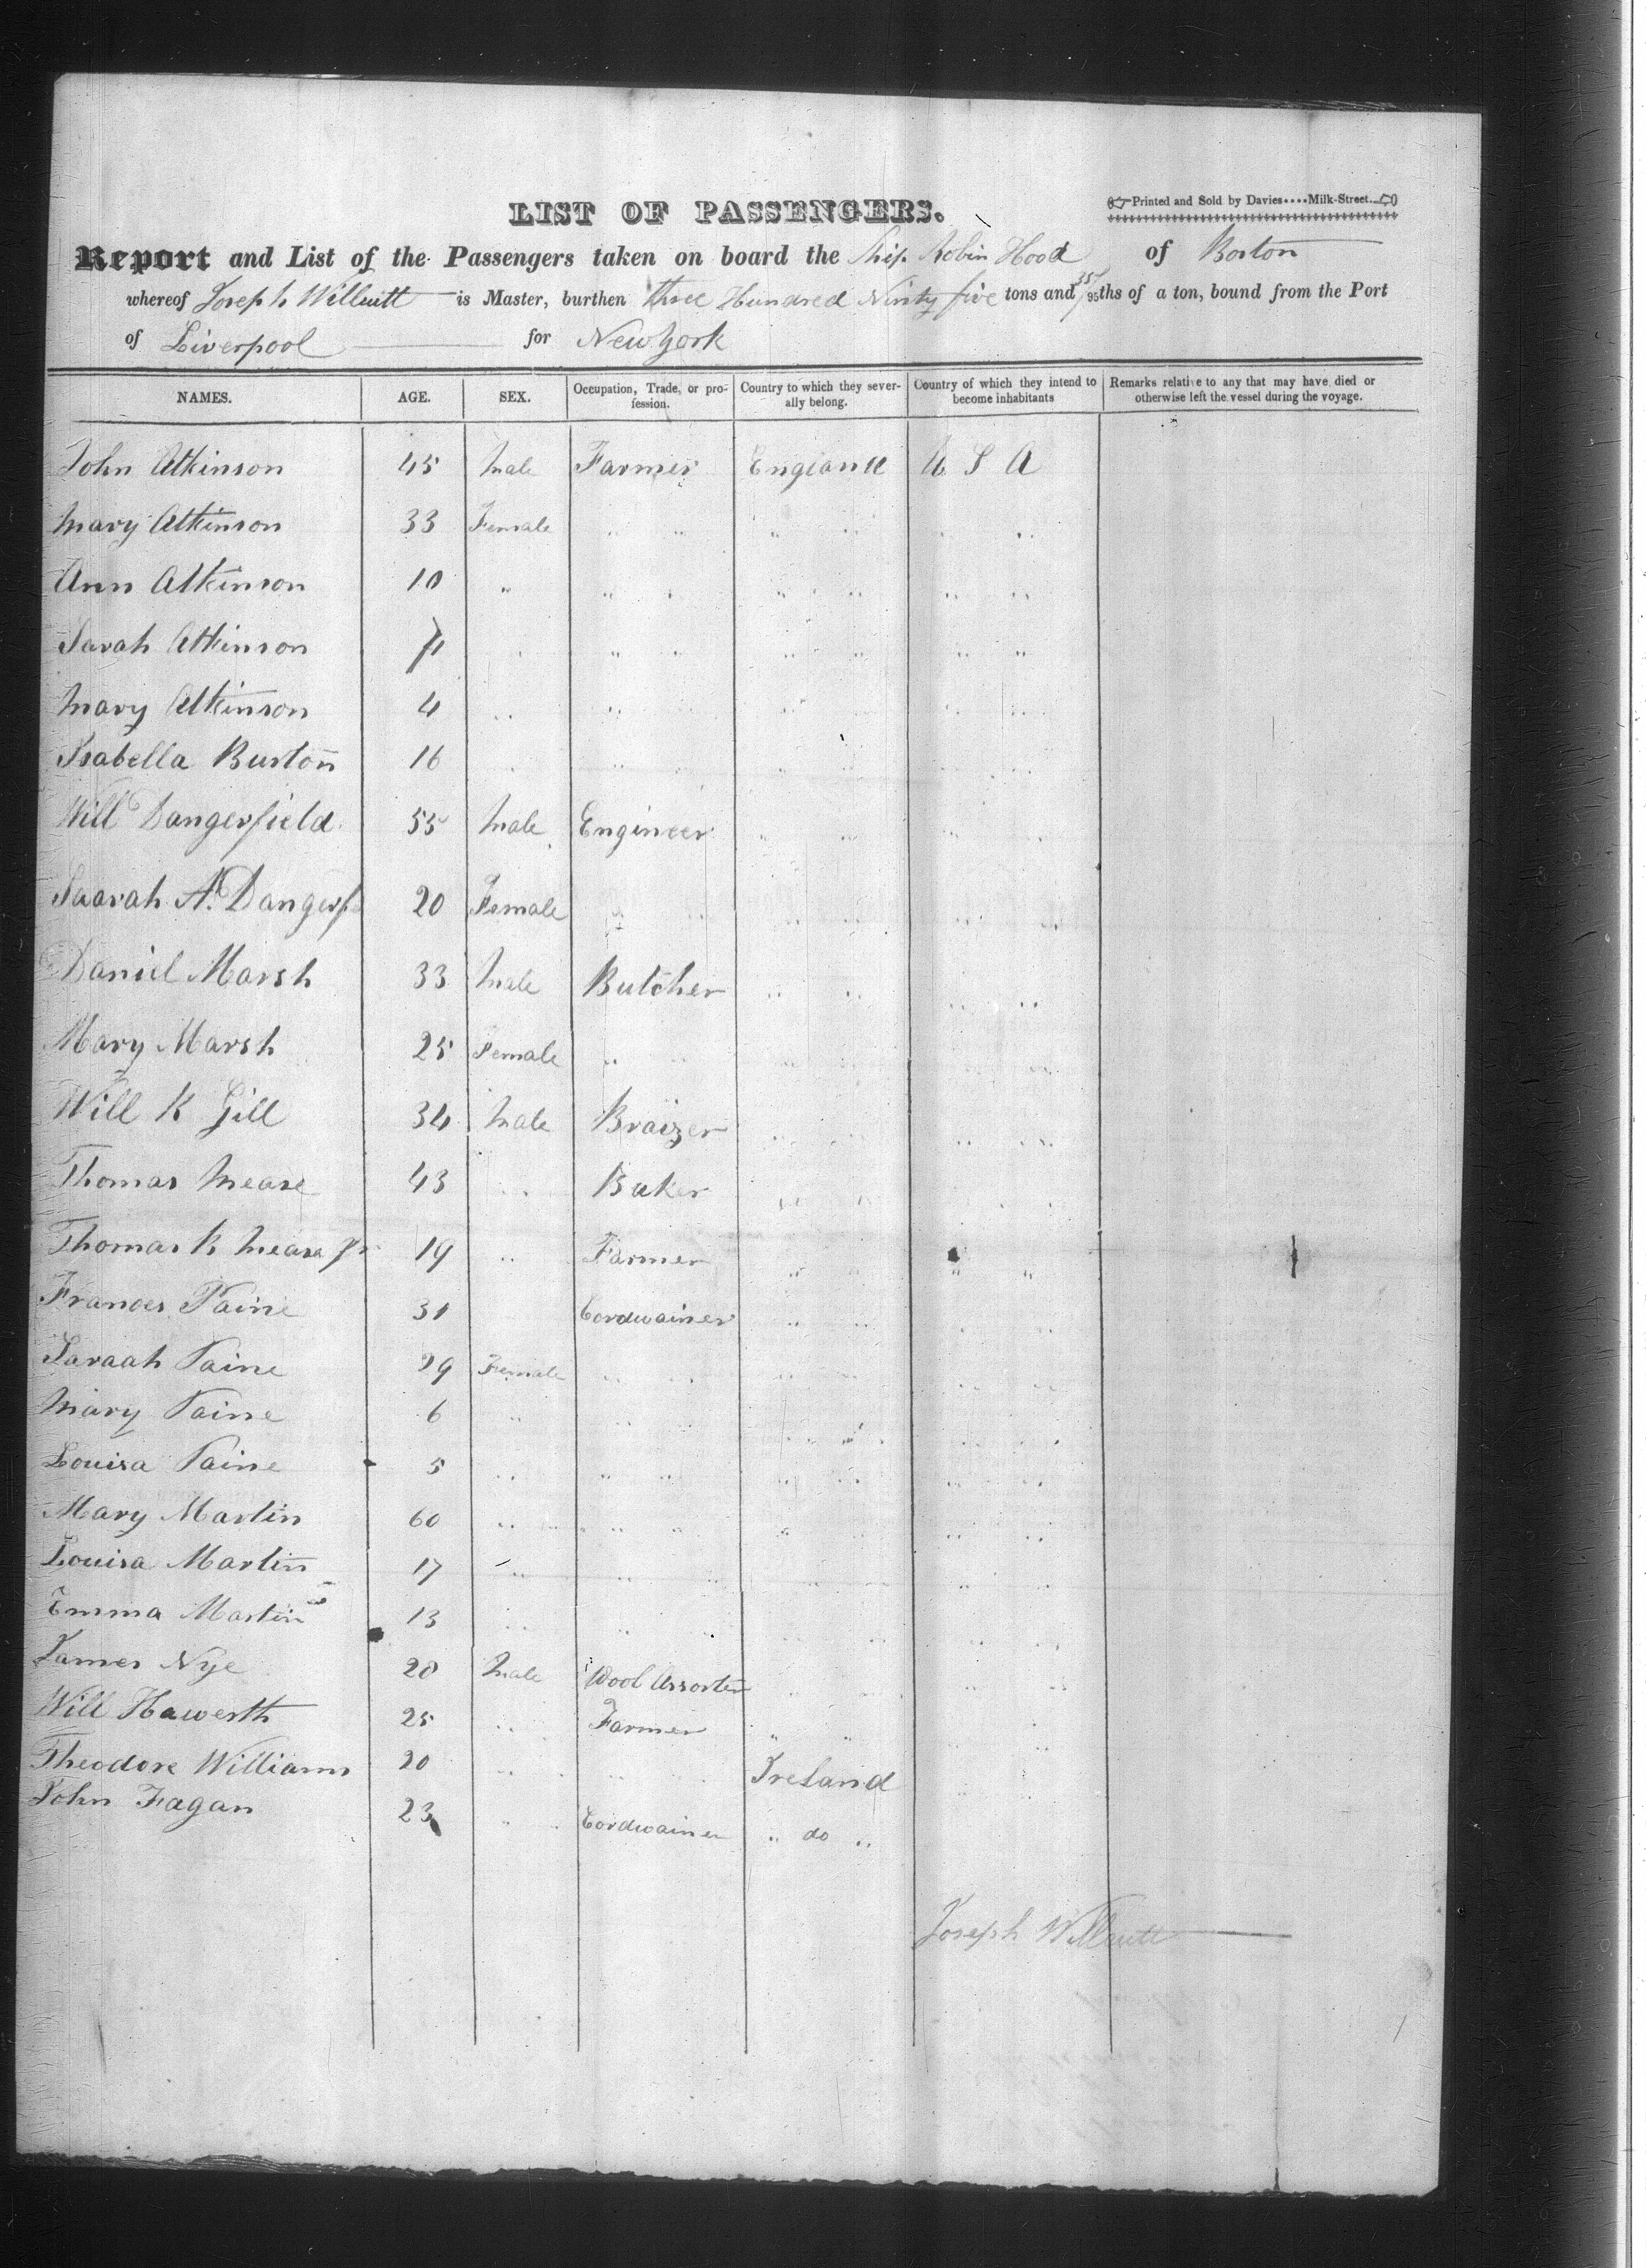 LIST OF PASSENGERS.
Printed and Sold by Davies....Milk-Street.
Report and List of the Passengers taken on board the Ship Robin Hood of Boston
whereof Joseph Willcutt is Master, burthen three Hundred Ninty five tons and 35/95ths of a ton, bound from the Port
of Liverpool for New York
NAMES. AGE. SEX. Occupation, Trade, or profession. Country to which they severally belong. Country of which they intend to become inhabitants Remarks relative to any that may have died or otherwise left the vessel during the voyage.
John Atkinson 45 Male Farmer England U S A
Mary Atkinson 33 Female " " " " " "
Ann Atkinson 10 " " " " " " "
Sarah Atkinson " " " " " " "
Mary Atkinson 4 " " " " " "
Isabella Burton 16 " " " " " "
Will Dangerfield 55 Male Engineer " " " "
Saarah A. Dangerf 20 Female " " " " " "
Daniel Marsh 33 Male Butcher " " " "
Mary Marsh 25 Female " " " " " "
Will K Gill 34 Male Braizer " " " "
Thomas Mease 43 " Baker " " " "
Thomas K Mease Jr 19 " Farmer " " " "
Frances Paine 31 Cordwainer " " " "
Saraah Paine 29 Female " " " " " "
Mary Paine 6 " " " " " " "
Louisa Paine 5 " " " " " " "
Mary Martin 60 " " " " " " "
Louisa Martin 17 " " " " " " "
Emma Martin 13 " " " " " "
James Nye 28 Male Wool Assorter " " " "
Will Haworth 25 " Farmer " " " "
Theodore Williams 20 " " " Ireland
John Fagan 23 " Cordwainer " do "
Joseph Willcutt